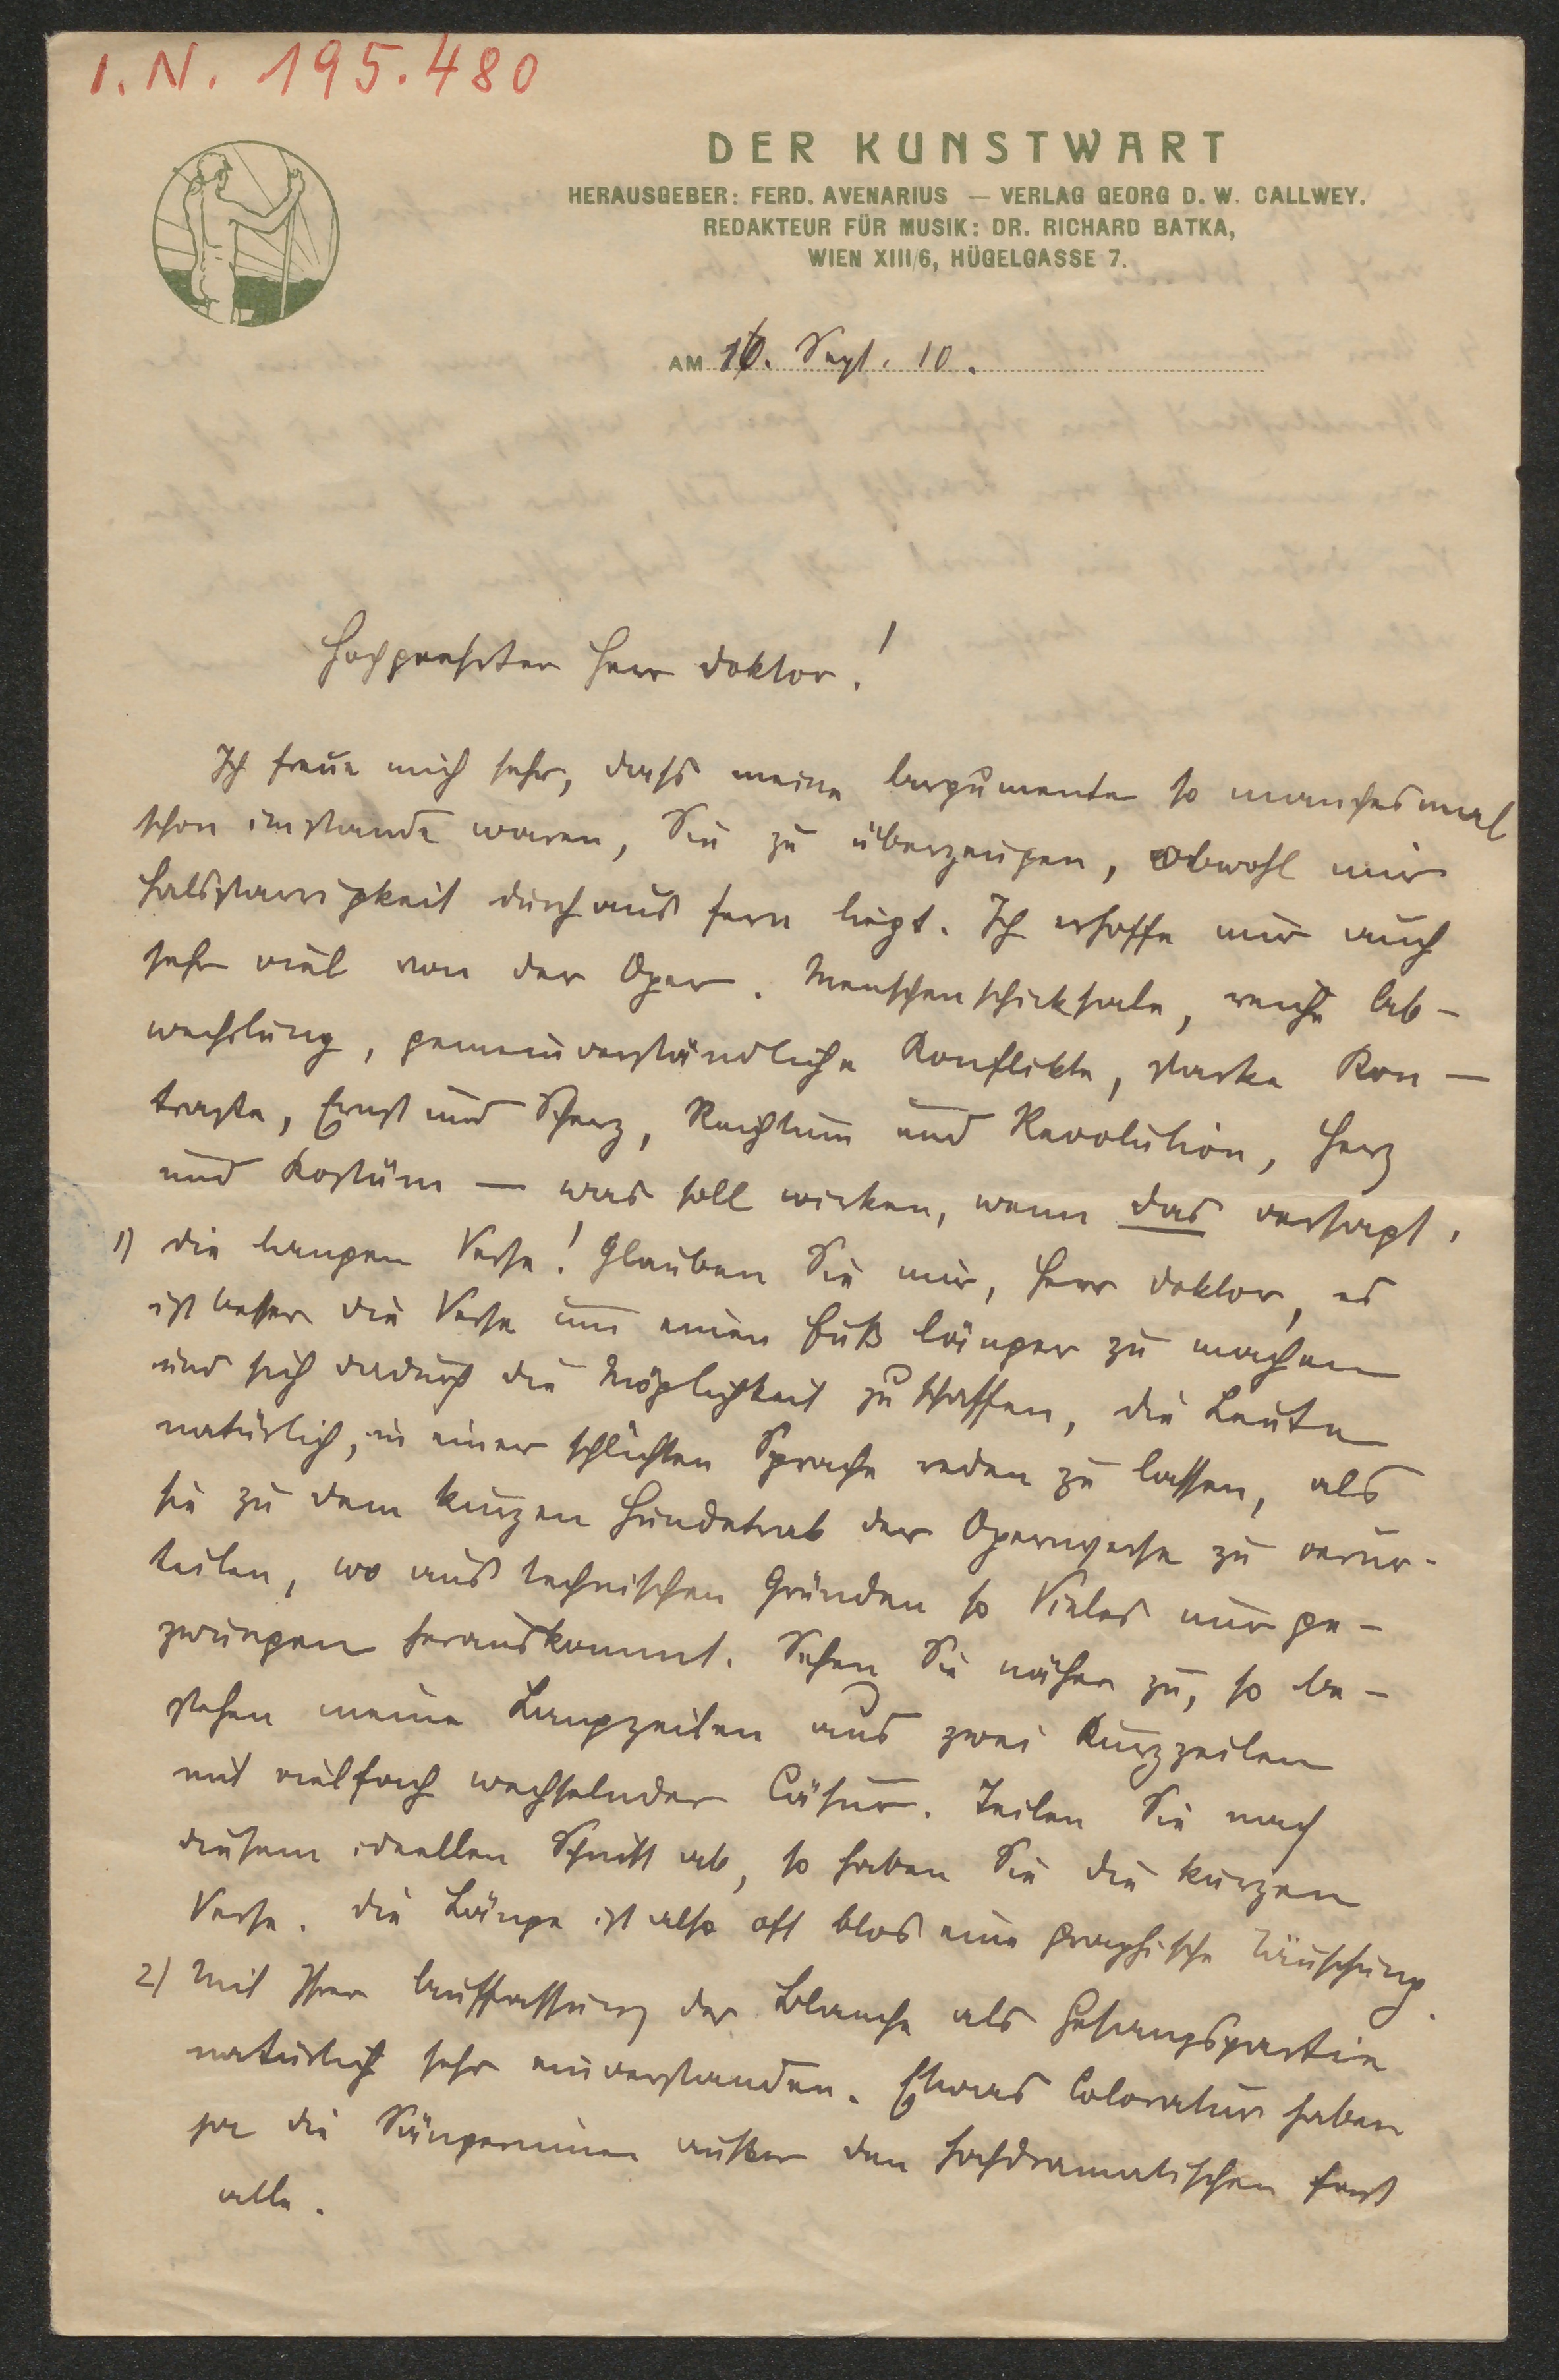 I. N. 195.480
DER KUNSTWART
HERAUSGEBER: FERD. AVENARIUS — VERLAG GEORG D. W. CALLWEY.
REDAKTEUR FÜR MUSIK: DR. RICHARD BATKA,
WIEN XIII/6, HÜGELGASSE 7.
AM Sept. 10.
Hochgeehrter Herr Doktor!
Ich freue mich sehr, dass meine Argumente so manchesmal
schon imstande waren, Sie zu überzeugen, obwohl mir
Halsstarrigkeit durchaus fern liegt. Ich erhoffe mir auch
sehr viel von der Oper. Menschenschicksale, reiche Ab-
wechslung, gemeinverständliche Konflikte, starke Kon-
traste, Ernst und Scherz, Reichtum und Revolution, Herz
und Kostüm — was soll wirken, wenn das versagt.
1) Die langen Verse! Glauben Sie mir, Herr Doktor, es
ist besser die Verse um einen Fuß länger zu machen
und sich dadurch die Möglichkeit zu schaffen, die Leute
natürlich, in einer schlichten Sprache reden zu lassen, als
sie zu dem kurzen Hundetrab der Opernverse zu verur-
teilen, wo aus technischen Gründen so Vieles nur ge-
zwungen herauskommt. Sehen Sie näher zu, so be-
stehen meine Langzeilen aus zwei Kurzzeilen
mit vielfach wechselnder Cäsur. Teilen Sie nach
diesem ideellen Schnitt ab, so haben Sie die kurzen
Verse. Die Länge ist also oft blos eine graphische Täuschung.
2) Mit Ihrer Auffassung der Blanche als Gesangspartie
natürlich sehr einverstanden. Etwas Coloratur haben
ja die Sängerinnen außer den hochdramatischen fast
alle.